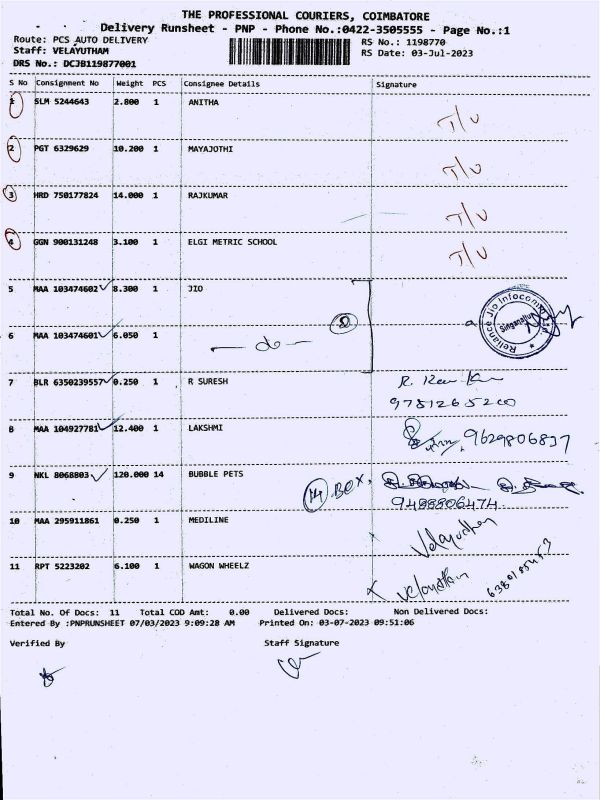 THE PROFESSIONAL COURIERS, COIMBATORE
Delivery Runsheet - PNP - Phone No.:0422-3505555 - Page No.:1
Route: PCS AUTO DELIVERY RS No.: 1198770
Staff: VELAYUTHAM RS Date: 03-Jul-2023
DRS No.: DCJB119877001
S No Consignment No Weight PCS Consignee Details Signature
1 SLM 5244643 2.800 1 ANITHA T/U
2 PGT 6329629 10.200 1 MAYAJOTHI T/U
3 HRD 750177824 14.000 1 RAJKUMAR T/U
4 GGN 900131248 3.100 1 ELGI METRIC SCHOOL T/U
5 MAA 103474602 8.300 1 JIO
Reliance Jio Infocomm
6 MAA 103474601 6.050 1 - do -
7 BLR 6350239557 0.250 1 R SURESH
9781265200
8 MAA 104927781 12.400 1 LAKSHMI 9629806837
9 NKL 8068803 120.000 14 BUBBLE PETS 14 BOX.
9488806474
10 MAA 295911861 0.250 1 MEDILINE Velayuthan
11 RPT 5223202 6.100 1 WAGON WHEELZ Velayuthan
Total No. Of Docs: 11 Total COD Amt: 0.00 Delivered Docs: Non Delivered Docs:
Entered By :PNPRUNSHEET 07/03/2023 9:09:28 AM Printed On: 03-07-2023 09:51:06
Verified By Staff Signature